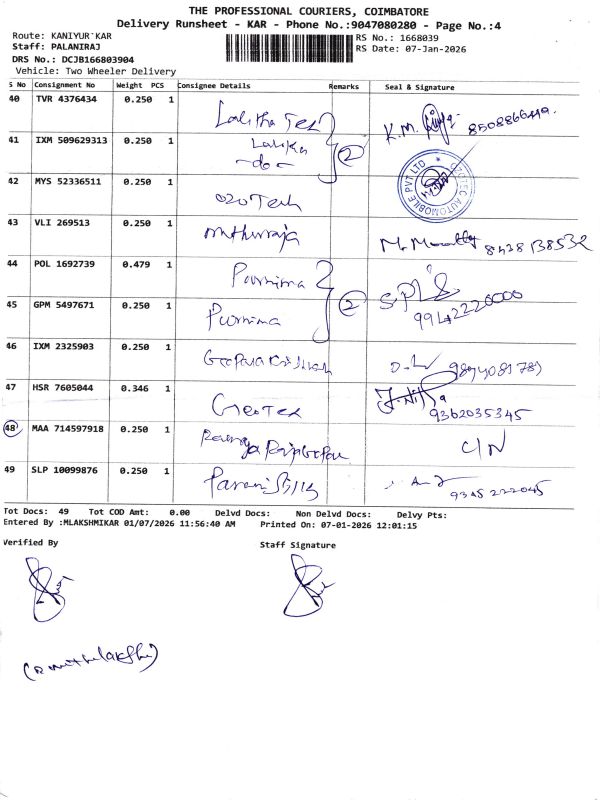 THE PROFESSIONAL COURIERS, COIMBATORE
Delivery Runsheet - KAR - Phone No.:9047080280 - Page No.:4
Route: KANIYUR KAR
RS No.: 1668039
Staff: PALANIRAJ
RS Date: 07-Jan-2026
DRS No.: DCJB166803904
Vehicle: Two Wheeler Delivery
S No Consignment No Weight PCS Consignee Details Remarks Seal & Signature
40 TVR 4376434 0.250 1 Lalitha Tex K.M.
41 IXM 509629313 0.250 1 -do- 2
AUTOMOBILE PVT LTD
42 MYS 52336511 0.250 1 Ozo Tech
43 VLI 269513 0.250 1 Muthuraja
44 POL 1692739 0.479 1 Purnima
45 GPM 5497671 0.250 1 Purnima 2 99422 20000
46 IXM 2325903 0.250 1 Gopala Krishnan
47 HSR 7605044 0.346 1 Geo Tex 9362035345
48 MAA 714597918 0.250 1 C/N
49 SLP 10099876 0.250 1 9345 222045
Tot Docs: 49 Tot COD Amt: 0.00 Delvd Docs: Non Delvd Docs: Delvy Pts:
Entered By :MLAKSHMIKAR 01/07/2026 11:56:40 AM Printed On: 07-01-2026 12:01:15
Verified By
Staff Signature